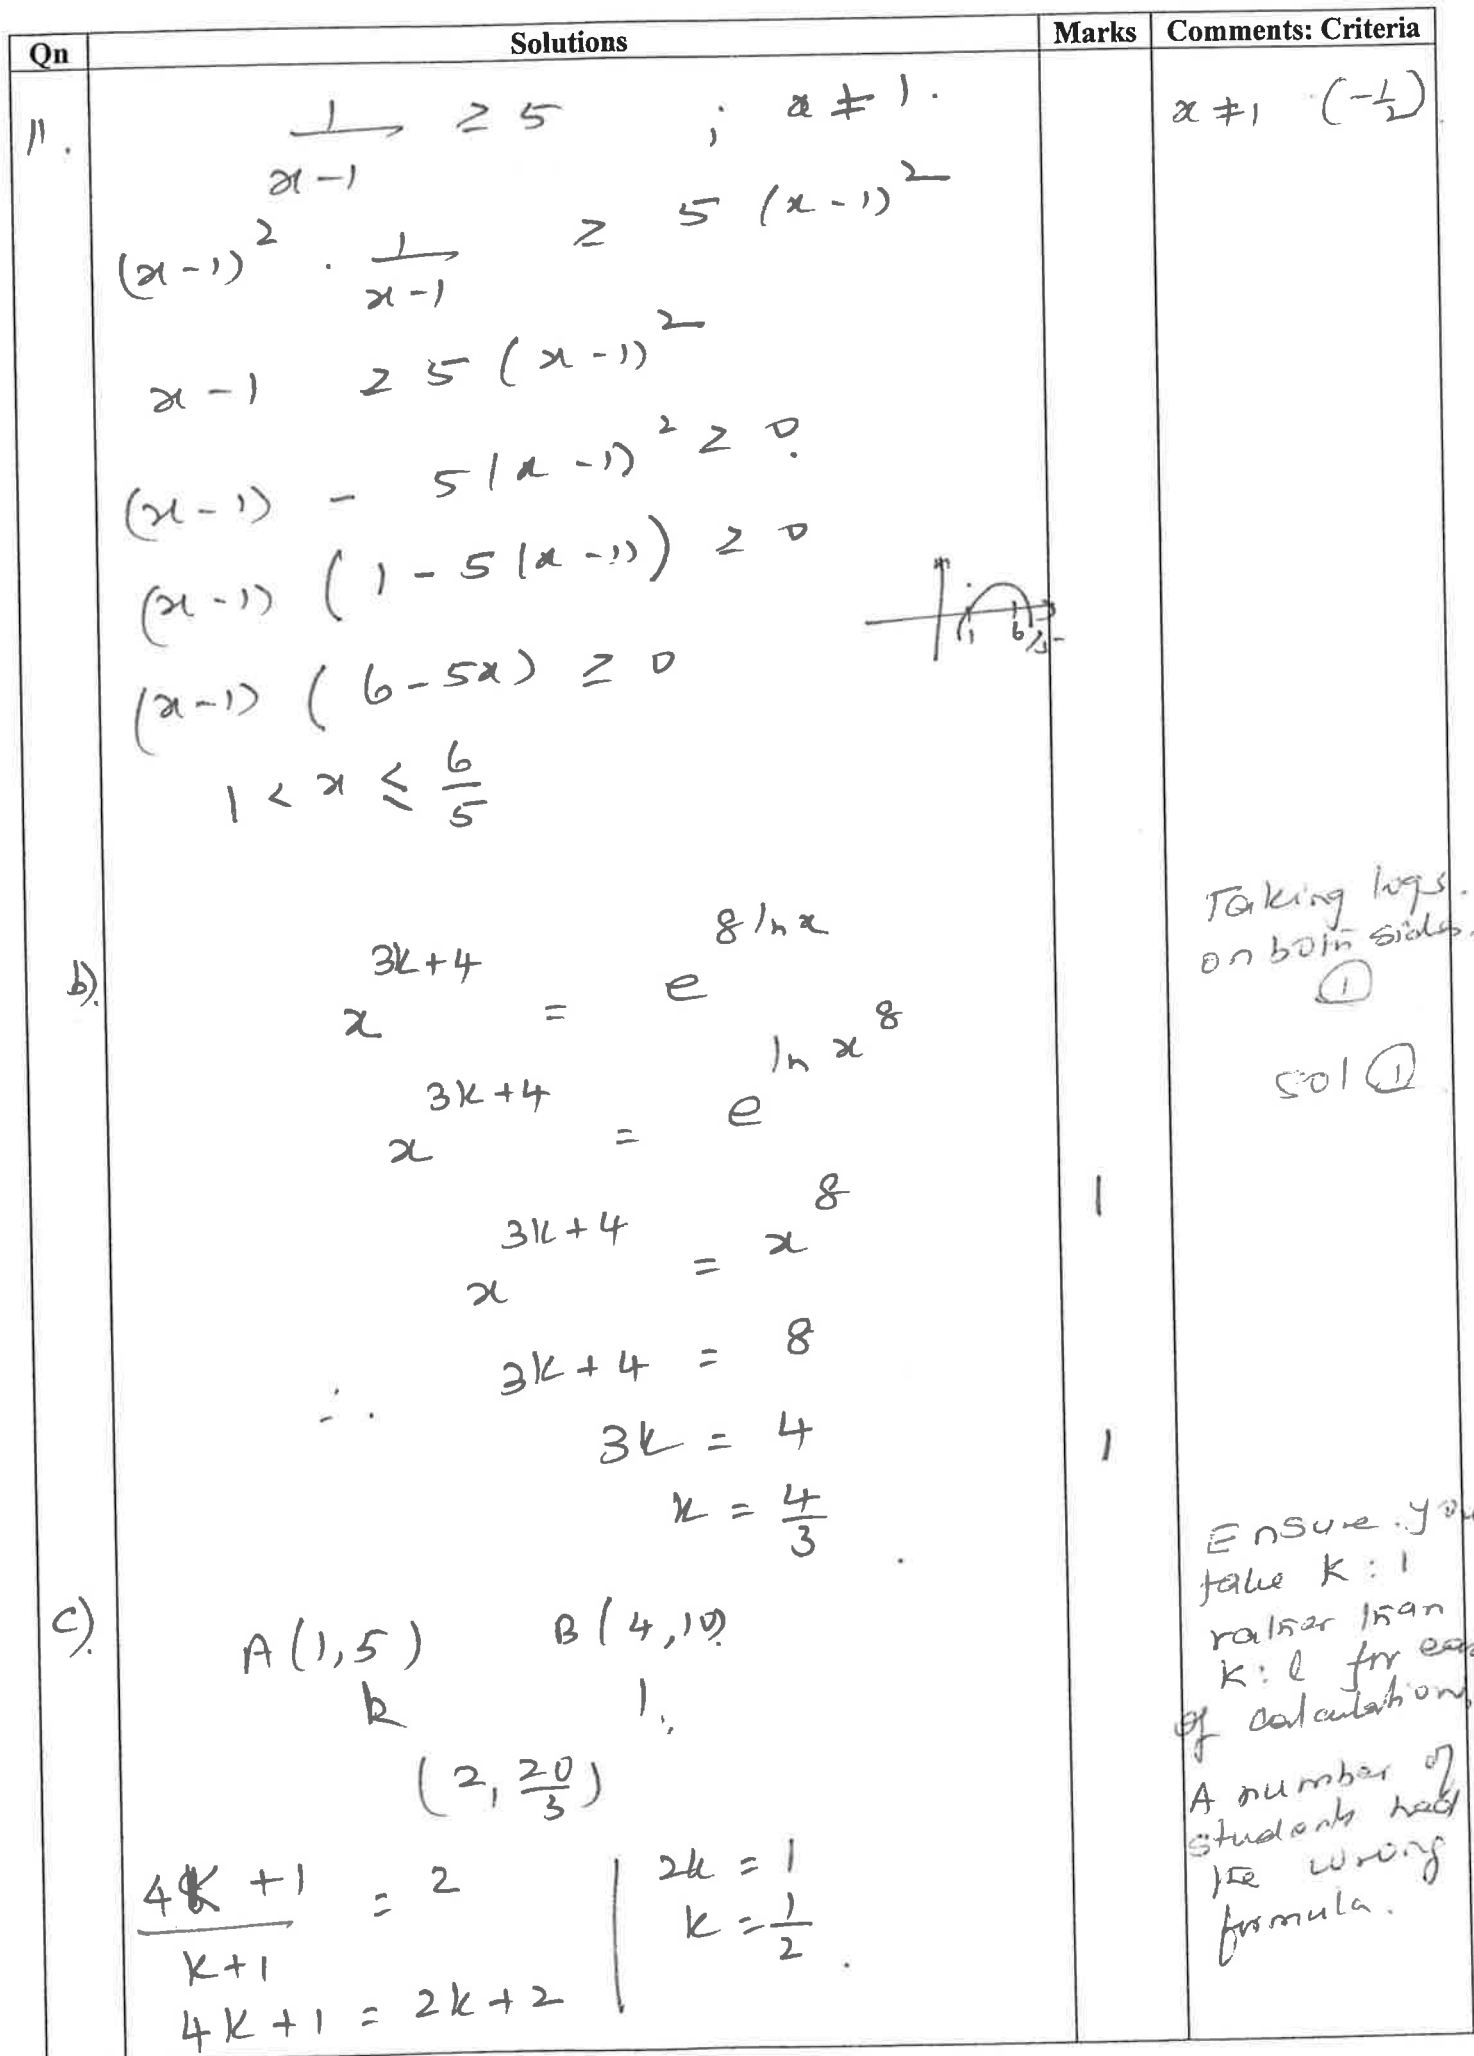 Qn Solutions Marks Comments: Criteria
11. 1/(x-1) ≥ 5 ; x ≠ 1. x ≠ 1 (-1/2)
(x-1)² . 1/(x-1) ≥ 5(x-1)²
x-1 ≥ 5(x-1)²
(x-1) - 5(x-1)² ≥ 0.
(x-1)(1-5(x-1)) ≥ 0
1 6/5
(x-1)(6-5x) ≥ 0
1 < x ≤ 6/5
b). x^(3k+4) = e^(8 ln x)
Taking logs.
on both sides.
①
x^(3k+4) = e^(ln x^8)
sol ①
x^(3k+4) = x^8 1
∴ 3k+4 = 8
3k = 4 1
k = 4/3 .
c). A(1,5) B(4,10)
k 1.
(2, 20/3)
(4k+1)/(k+1) = 2
4k+1 = 2k+2
2k = 1
k = 1/2 .
Ensure you
take k:1
rather than
k:l for
of calculation
A number of
students had
the wrong
formula.